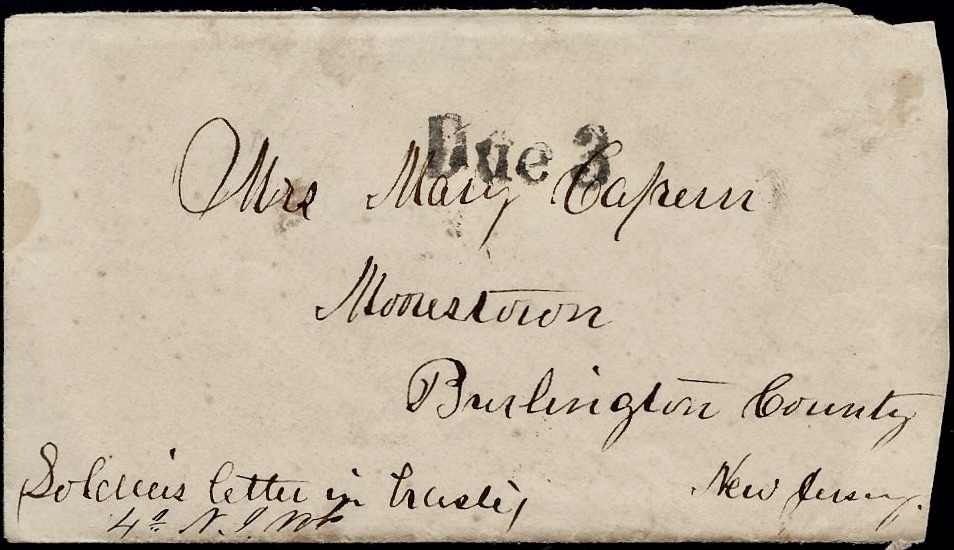 Due 3
Mrs Mary Capern
Moorestown
Burlington County
New Jersey.
Soldiers letter in
4th N.J.